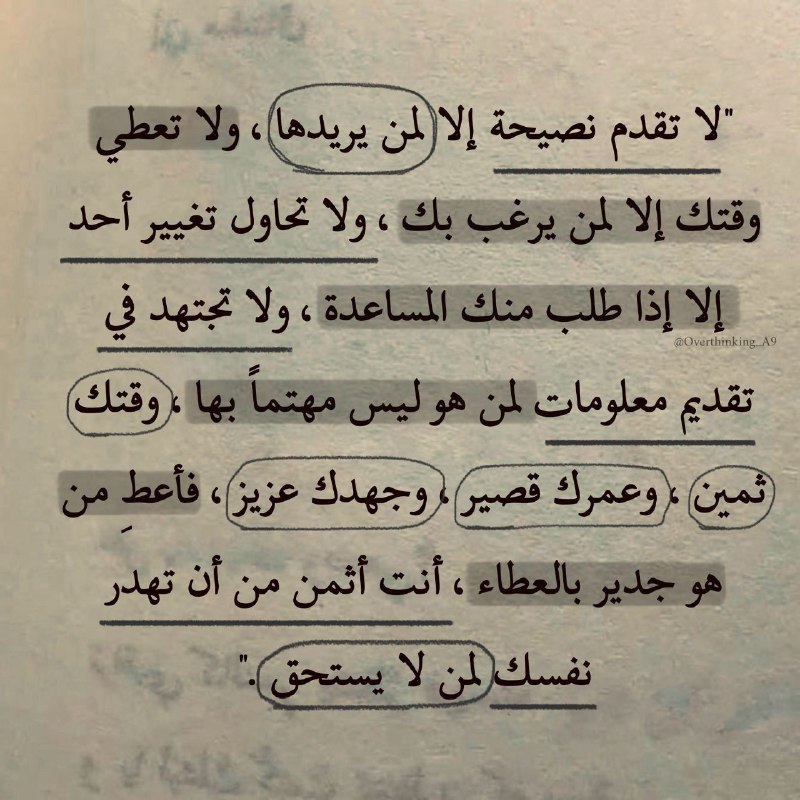 "لا تقدم نصيحة إلا لمن يريدها ، ولا تعطي
وقتك إلا لمن يرغب بك ، ولا تحاول تغيير أحد
إلا إذا طلب منك المساعدة ، ولا تجتهد في
@Overthinking_A9
تقديم معلومات لمن هو ليس مهتماً بها ، وقتك
ثمين ، وعمرك قصير ، وجهدك عزيز ، فأعطِ من
هو جدير بالعطاء ، أنت أثمن من أن تهدر
نفسك لمن لا يستحق ."